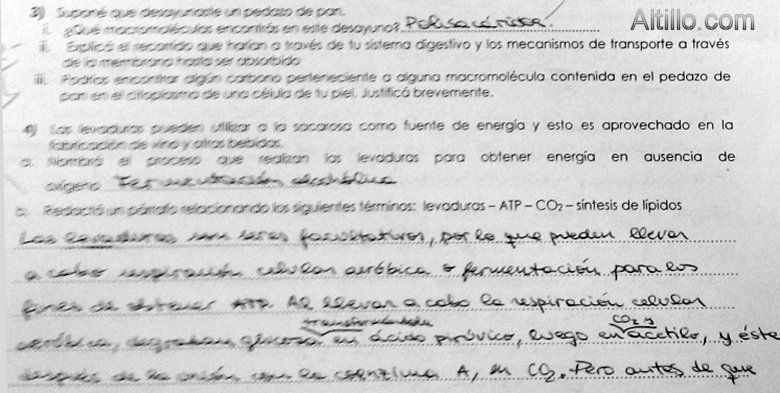 Altillo.com
3) Suponé que desayunaste un pedazo de pan.
i. ¿Qué macromoléculas encontrás en este desayuno? Polisacáridos.
ii. Explicá el recorrido que harían a través de tu sistema digestivo y los mecanismos de transporte a través
de la membrana hasta ser absorbido
iii. Podrías encontrar algún carbono perteneciente a alguna macromolécula contenida en el pedazo de
pan en el citoplasma de una célula de tu piel. Justificá brevemente.
4) Las levaduras pueden utilizar a la sacarosa como fuente de energía y esto es aprovechado en la
fabricación de vino y otras bebidas.
a. Nombrá el proceso que realizan las levaduras para obtener energía en ausencia de
oxígeno Fermentación alcohólica
b. Redactá un párrafo relacionando los siguientes términos: levaduras – ATP – CO₂ – síntesis de lípidos
Las levaduras son seres facultativos, por lo que pueden llevar
a cabo respiración celular aeróbica o fermentación para los
fines de obtener ATP. Al llevar a cabo la respiración celular
transformándola CO₂ y
aeróbica, degradan glucosa en ácido pirúvico, luego en acetilo, y éste
después de la unión con la coenzima A, en CO₂. Pero antes de que